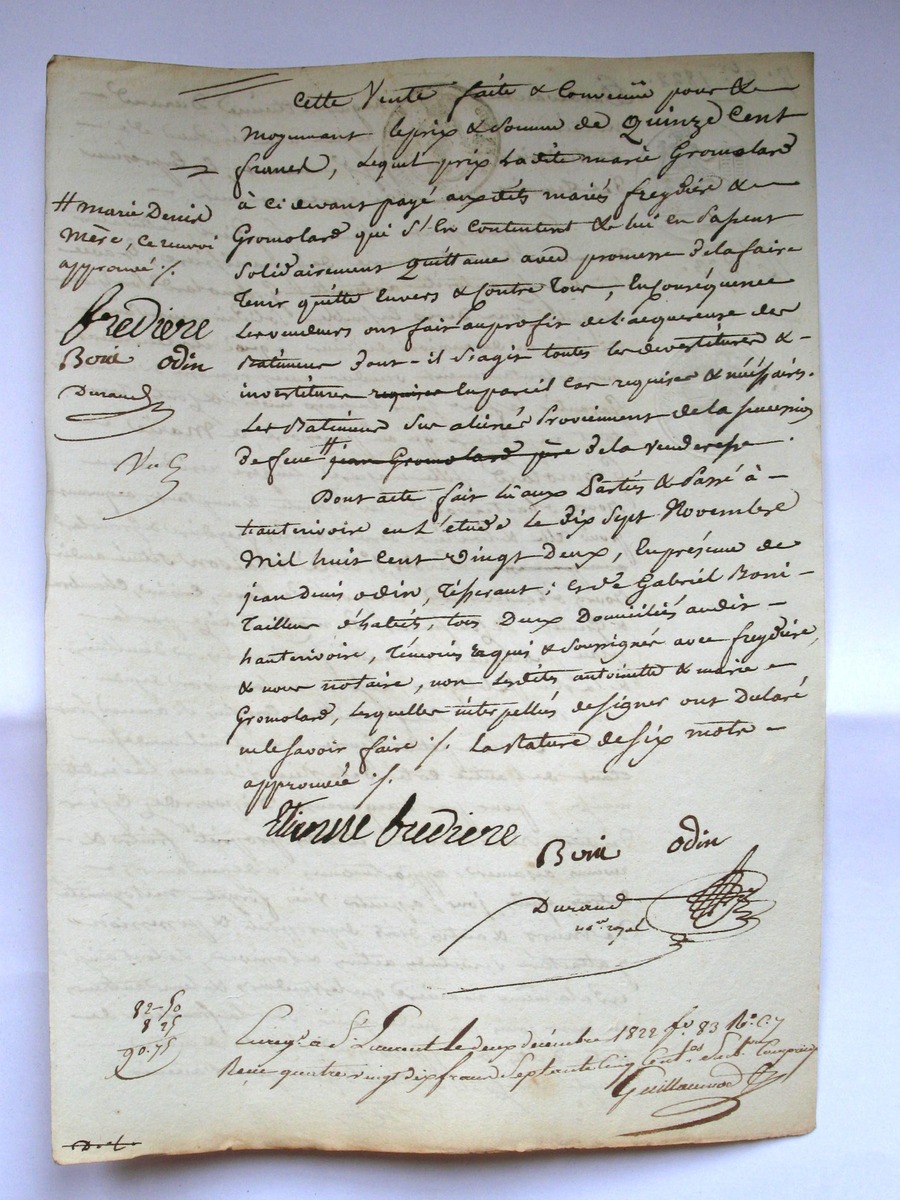 Cette Vente faite & Convenuë pour &
Moyennant le prix & Somme de Quinze Cent
francs, Lequel prix Ladite marie Gromolard
à ci devant payé auxdits mariés freydière &
Gromolard qui S'En Contentent & lui en Passent
Solidairement Quittance avec promesse de la faire
Tenir quitte Envers & Contre Tous, En Conséquence
Les vendeurs ont fait au profit de L'acquereuse des
Batimens dont-il S'agit toutes les devestitures &
investitures requises En pareil Cas requises & nécéssaires.
Les Batimens Sus aliénés Proviennent de la succession
de feue # jean Gromolard père de la Venderesse.
# marie Denis
mère, Ce renvoi
approuvé ./.
fredière
Boni odin
Durand
Dont acte fait Lu aux Parties & Passé à
hauterivoire en L'étude Le Dix Sept Novembre
Mil huit Cent Vingt Deux, En présence de
jean Denis odin, Tisserant; & de Gabriel Boni
Tailleur d'habits, tous Deux Domiciliés audit
hauterivoire, Témoins Requis & Soussignés avec freydière,
& nous notaire, non Lesdites antoinette & marie
Gromolard, Lesquelles interpellées de signer ont Déclaré
ne le Savoir faire ./. La Rature de Six mots
approuvée ./.
Etienne fredière
Boni odin
Durand
nore royal
82-50
8 25
90.75
Enregé à St Laurent Le deux décembre 1822 fo 83 Ro C 7
Reçu quatre vingt dix francs Septante Cinq Centes
Guillaumond